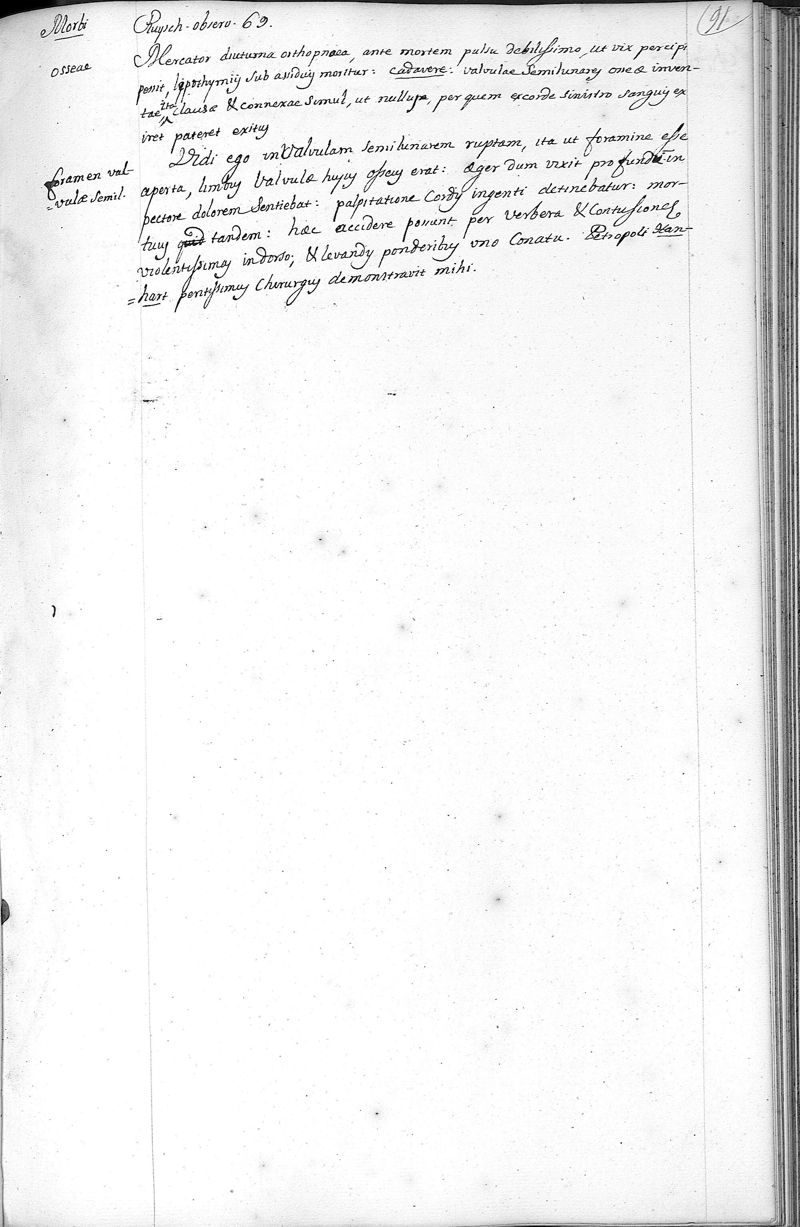 Morbi Ruysch. observ. 69. 91
osseae
Mercator diuturna orthopnaea, ante mortem pulsu debilissimo, ut vix percipi
posset, lipothymiis sub assiduis moritur: cadavere: valvulae semilunares osseae inven-
tae ita clausae & connexae simul, ut nullus, per quem ex corde sinistro sanguis ex
iret pateret exitus
foramen val-
=vulae semil.
Vidi ego in valvulam semilunarem ruptam, ita ut foramine esse
aperta, limbus valvulae hujus osseus erat: aeger dum vixit profunde in
pectore dolorem sentiebat: palpitatione Cordis ingenti detinebatur: mor-
tuus tandem: haec accidere possunt per verbera & Contusiones
violentissimas in dorso, & levandis ponderibus uno Conatu. Petropoli Xan-
=hart peritissimus Chirurgus demonstravit mihi.